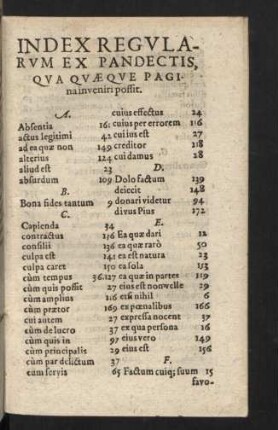 INDEX REGVLA-
RVM EX PANDECTIS,
QVA QVÆQVE PAGI-
na inveniri possit.
A.
Absentia 161
actus legitimi 42
ad ea quæ non 149
alterius 124
aliud est 23
absurdum 109
B.
Bona fides tantum 9
C.
Capienda 34
contractus 156
consilii 136
culpa est 141
culpa caret 150
cùm tempus 36.127
cùm quis possit 27
cùm amplius 116
cùm prætor 169
cui autem 27
cùm de lucro 37
cùm quis in 97
cùm principalis 29
cùm par delictum 37
cùm servis 65
cuius effectus 24
cuius per errorem 116
cui ius est 27
creditor 118
cui damus 28
D.
Dolo factum 139
deiecit 148
donari videtur 94
divus Pius 172
E.
Ea quæ dari 12
ea quæ rarò 50
ea est natura 23
ea sola 113
ea quæ in partes 119
eius est nonvelle 29
eius nihil 6
ex pœnalibus 166
expressa nocent 37
ex qua persona 16
eius vero 149
eius est 156
F.
Factum cuiq; suum 15
favo-